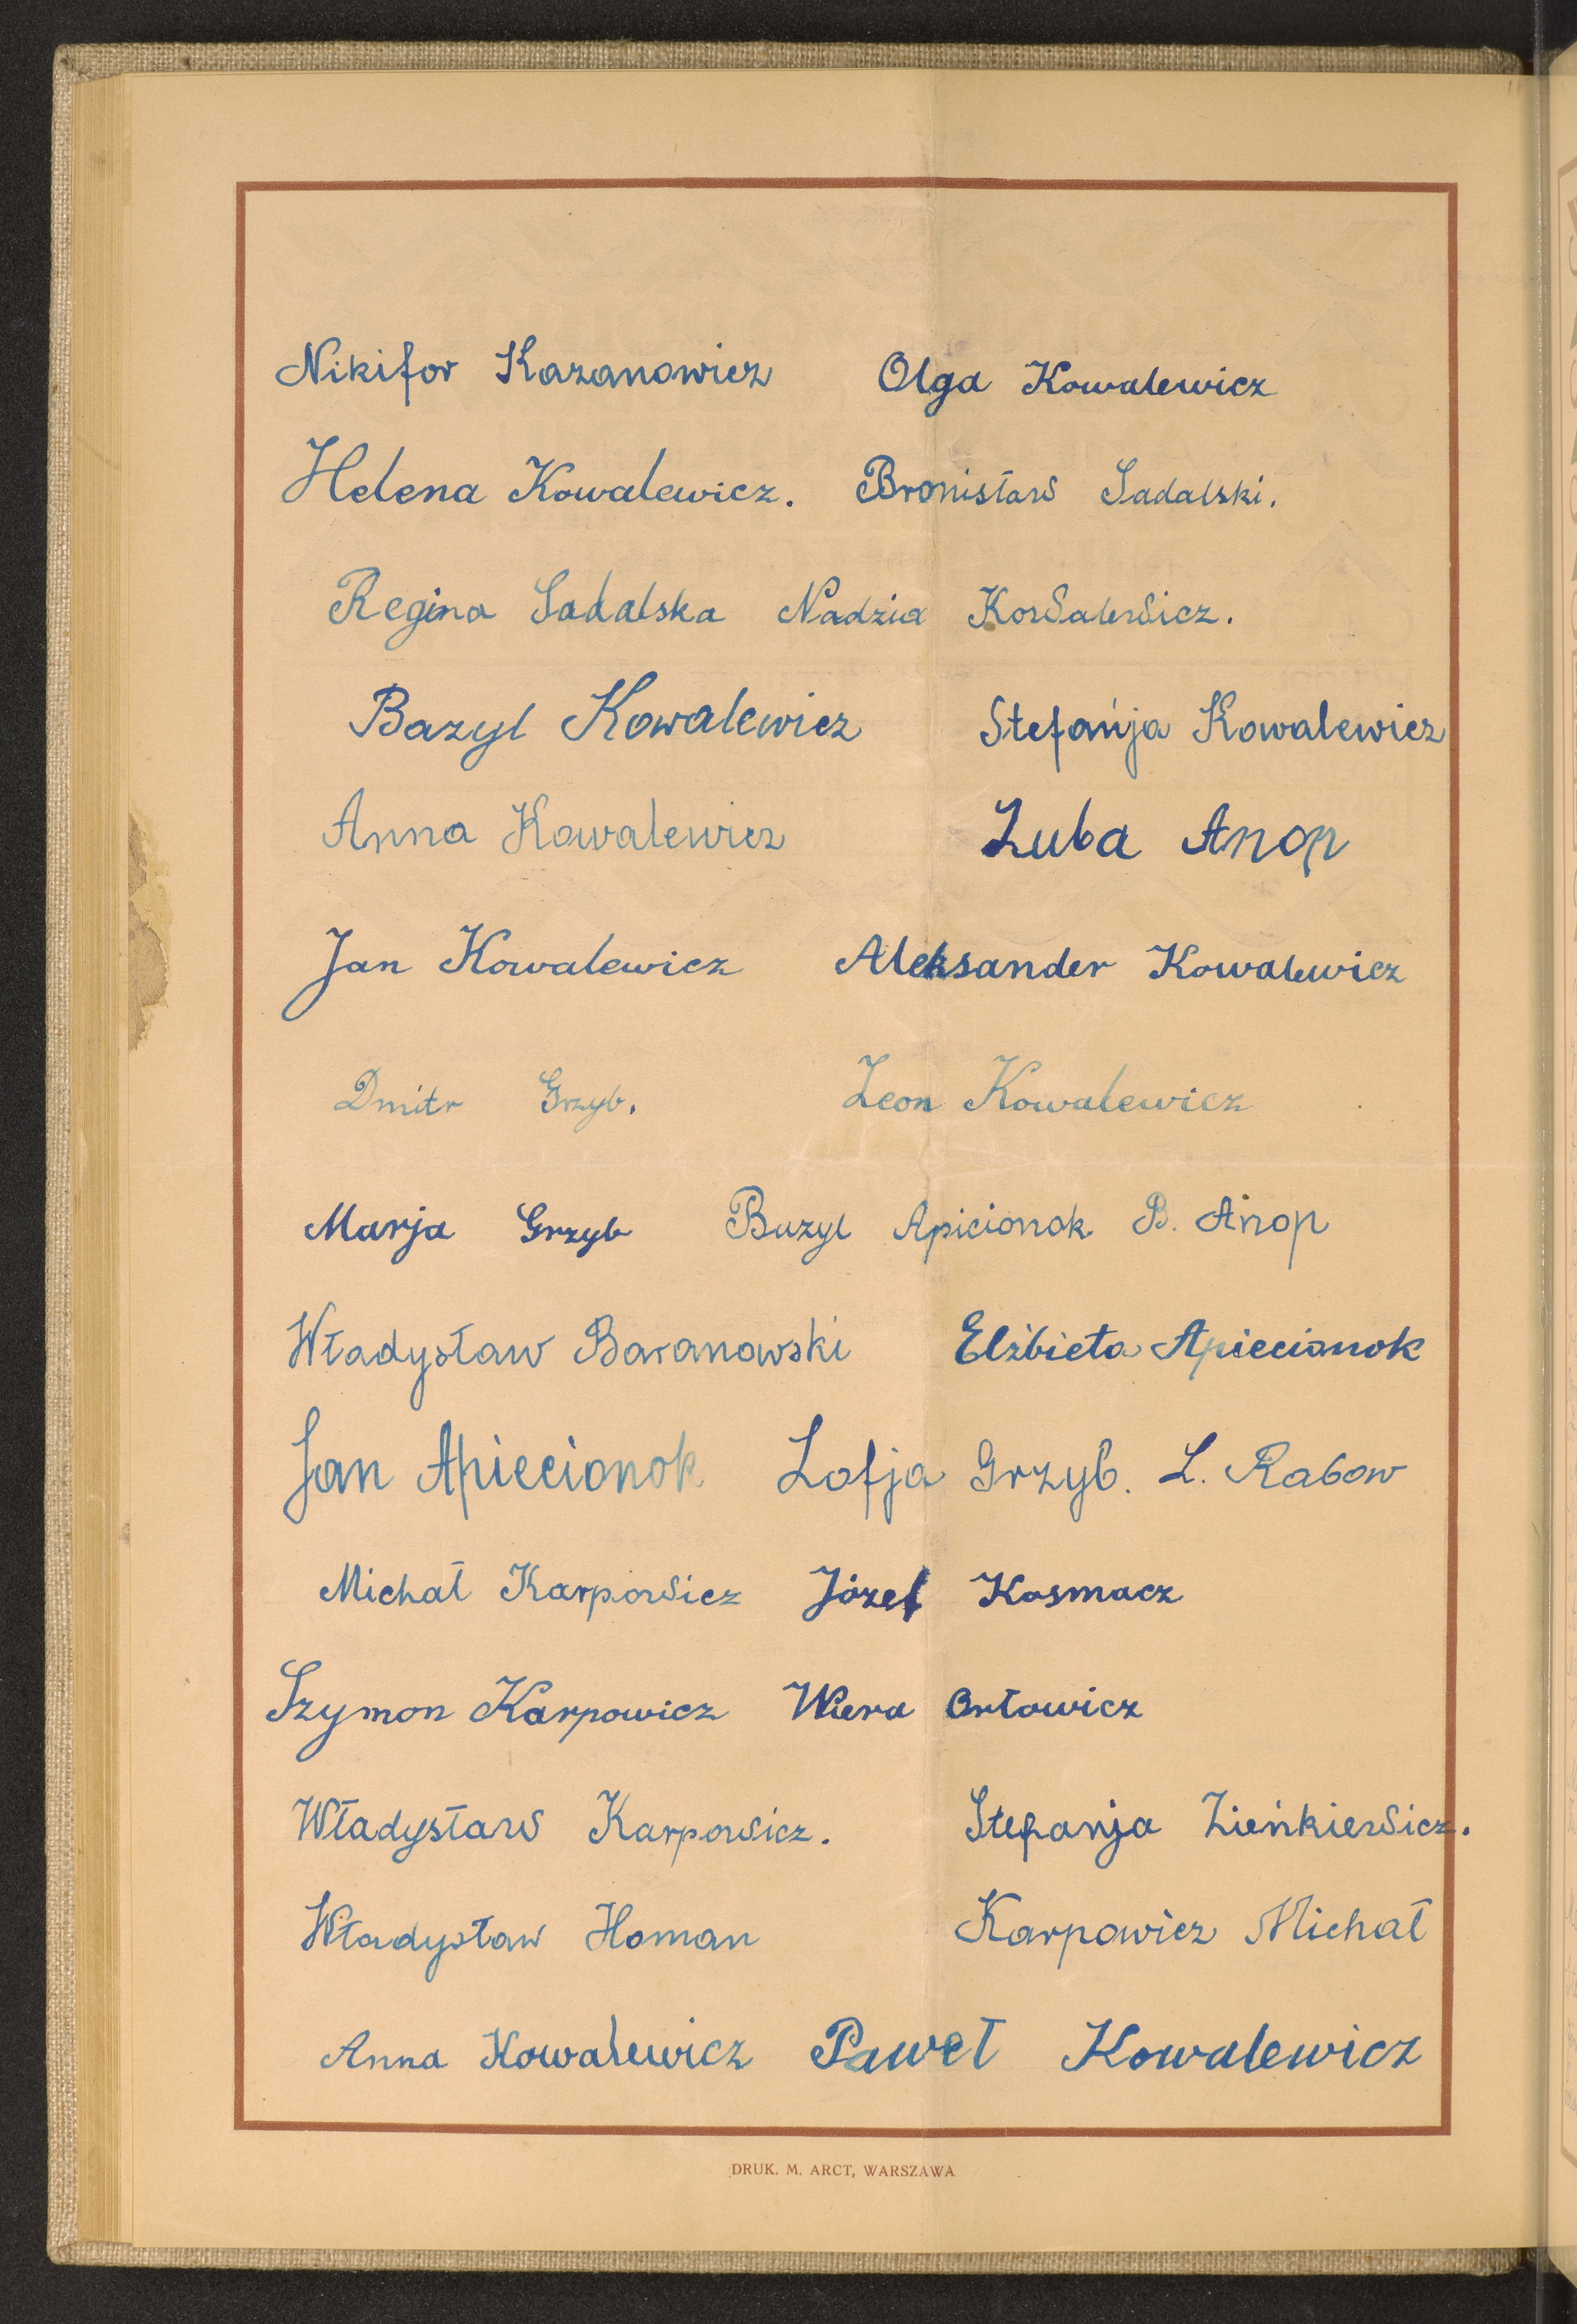 Nikifor Kazanowicz Olga Kowalewicz
Helena Kowalewicz. Bronisław Sadalski.
Regina Sadalska Nadzia Kowalewicz.
Bazyl Kowalewicz Stefańja Kowalewicz
Anna Kowalewicz Luba Anop
Jan Kowalewicz Aleksander Kowalewicz
Dmitr Grzyb. Leon Kowalewicz
Marja Grzyb Bazyl Apicionok B. Anop
Władysław Baranowski Elżbieta Apiecionok
Jan Apiecionok Zofja Grzyb. L. Rabow
Michał Karpowicz Józef Kosmacz
Szymon Karpowicz Wiera Orłowicz
Władysław Karpowicz. Stefanja Zieńkiewicz.
Władysław Homan Karpowicz Michał
Anna Kowalewicz Paweł Kowalewicz
DRUK. M. ARCT, WARSZAWA